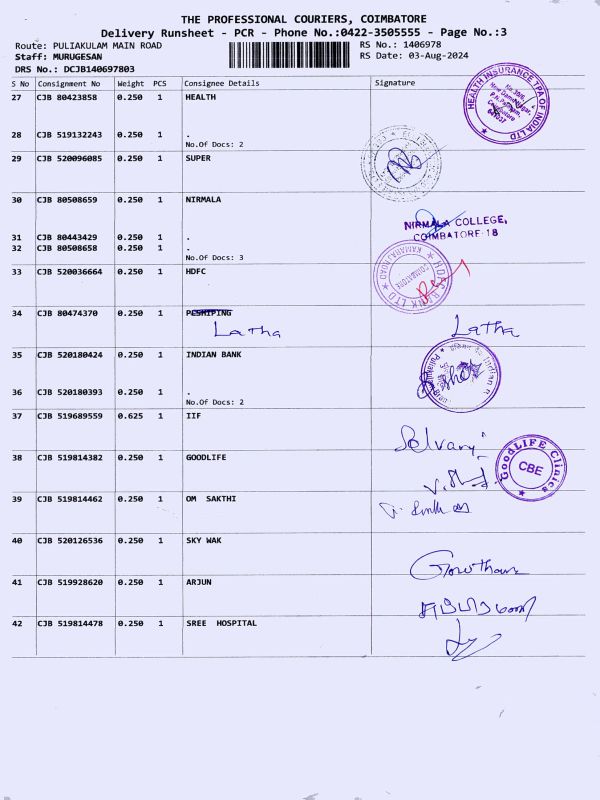 THE PROFESSIONAL COURIERS, COIMBATORE
Delivery Runsheet - PCR - Phone No.:0422-3505555 - Page No.:3
Route: PULIAKULAM MAIN ROAD RS No.: 1406978
Staff: MURUGESAN RS Date: 03-Aug-2024
DRS No.: DCJB140697803
S No Consignment No Weight PCS Consignee Details Signature
27 CJB 80423858 0.250 1 HEALTH
HEALTH INSURANCE TPA OF INDIA LTD
28 CJB 519132243 0.250 1 .
No.Of Docs: 2
29 CJB 520096085 0.250 1 SUPER
30 CJB 80508659 0.250 1 NIRMALA
NIRMALA COLLEGE,
COIMBATORE-18
31 CJB 80443429 0.250 1 .
32 CJB 80508658 0.250 1 .
No.Of Docs: 3
33 CJB 520036664 0.250 1 HDFC
HDFC BANK LTD KAMARAJ ROAD
COIMBATORE
34 CJB 80474370 0.250 1
Latha Latha
35 CJB 520180424 0.250 1 INDIAN BANK
36 CJB 520180393 0.250 1 .
No.Of Docs: 2
37 CJB 519689559 0.625 1 IIF
Selvary
38 CJB 519814382 0.250 1 GOODLIFE
GoodLIFE Clinics
CBE
39 CJB 519814462 0.250 1 OM SAKTHI
40 CJB 520126536 0.250 1 SKY WAK
Gowtham
41 CJB 519928620 0.250 1 ARJUN
42 CJB 519814478 0.250 1 SREE HOSPITAL